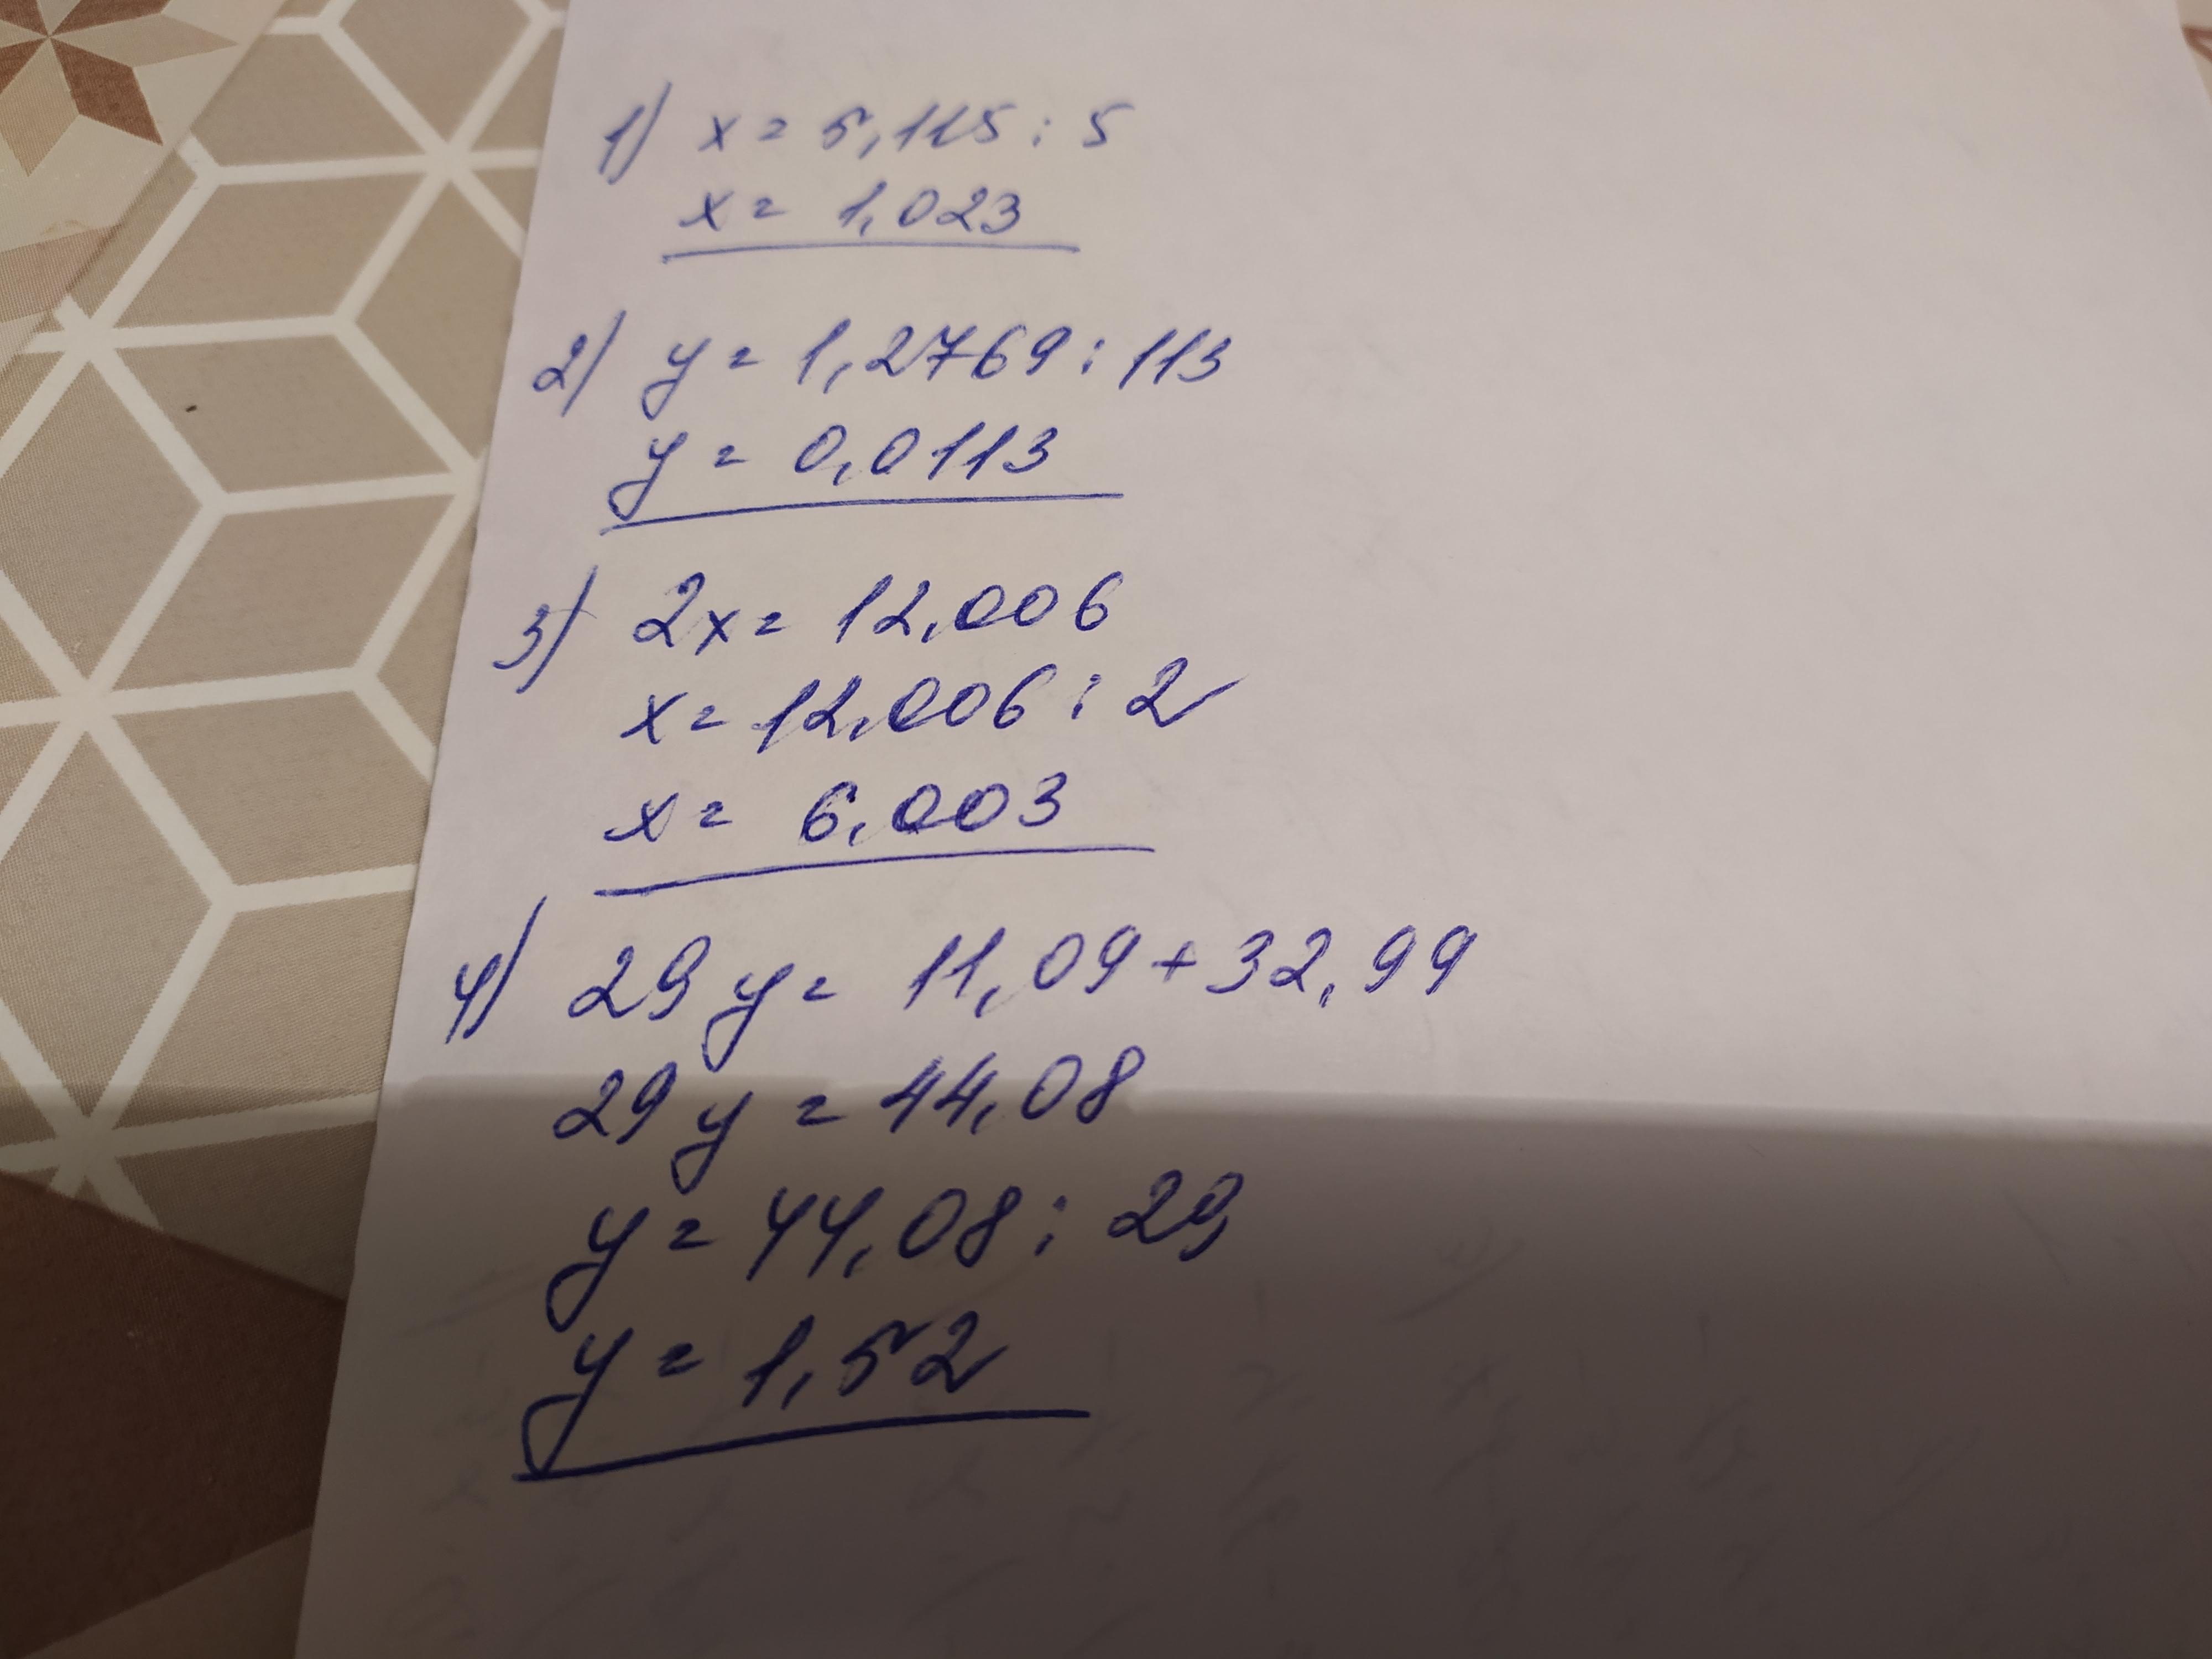 1) x = 5,115 : 5
x = 1,023
2) y = 1,2769 : 113
y = 0,0113
3) 2x = 12,006
x = 12,006 : 2
x = 6,003
4) 29y = 11,09 + 32,99
29y = 44,08
y = 44,08 : 29
y = 1,52